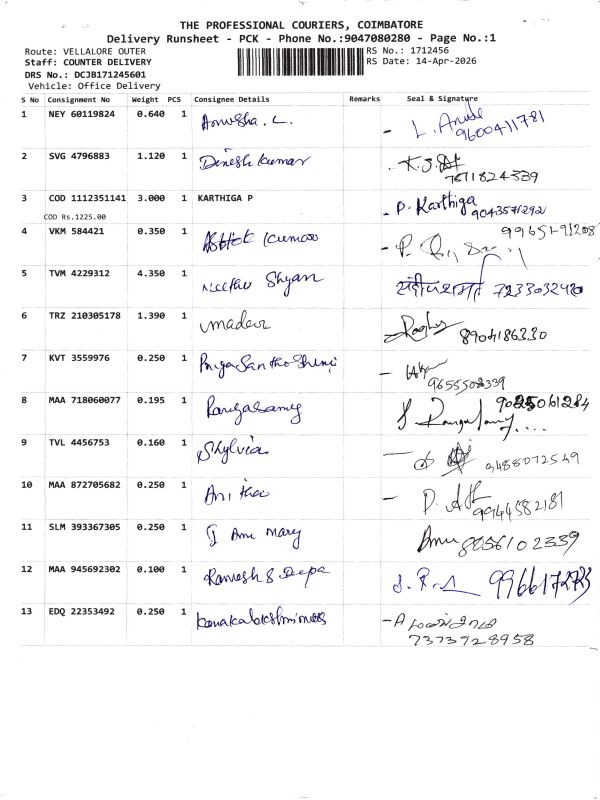 THE PROFESSIONAL COURIERS, COIMBATORE
Delivery Runsheet - PCK - Phone No.:9047080280 - Page No.:1
Route: VELLALORE OUTER
RS No.: 1712456
Staff: COUNTER DELIVERY
RS Date: 14-Apr-2026
DRS No.: DCJB171245601
Vehicle: Office Delivery
S No Consignment No Weight PCS Consignee Details Remarks Seal & Signature
1 NEY 60119824 0.640 1 Anusha. L. - L. Anusha
9600411781
2 SVG 4796883 1.120 1 Dinesh kumar
7671824339
3 COD 1112351141 3.000 1 KARTHIGA P - P. Karthiga
9043571292
COD Rs.1225.00
4 VKM 584421 0.350 1 Kumar
5 TVM 4229312 4.350 1 Neethu Shyan संदीप शर्मा 7233032480
6 TRZ 210305178 1.390 1 Raghu 8904186330
7 KVT 3559976 0.250 1 PriyaSanthoShini
9655502339
8 MAA 718060077 0.195 1 Rangasamy 9025061284
9 TVL 4456753 0.160 1 Shylvia
9488072549
10 MAA 872705682 0.250 1 Anitha
9944582181
11 SLM 393367305 0.250 1 Mary Amu 8056102339
12 MAA 945692302 0.100 1 Ramesh S Deepa
13 EDQ 22353492 0.250 1
7373728958